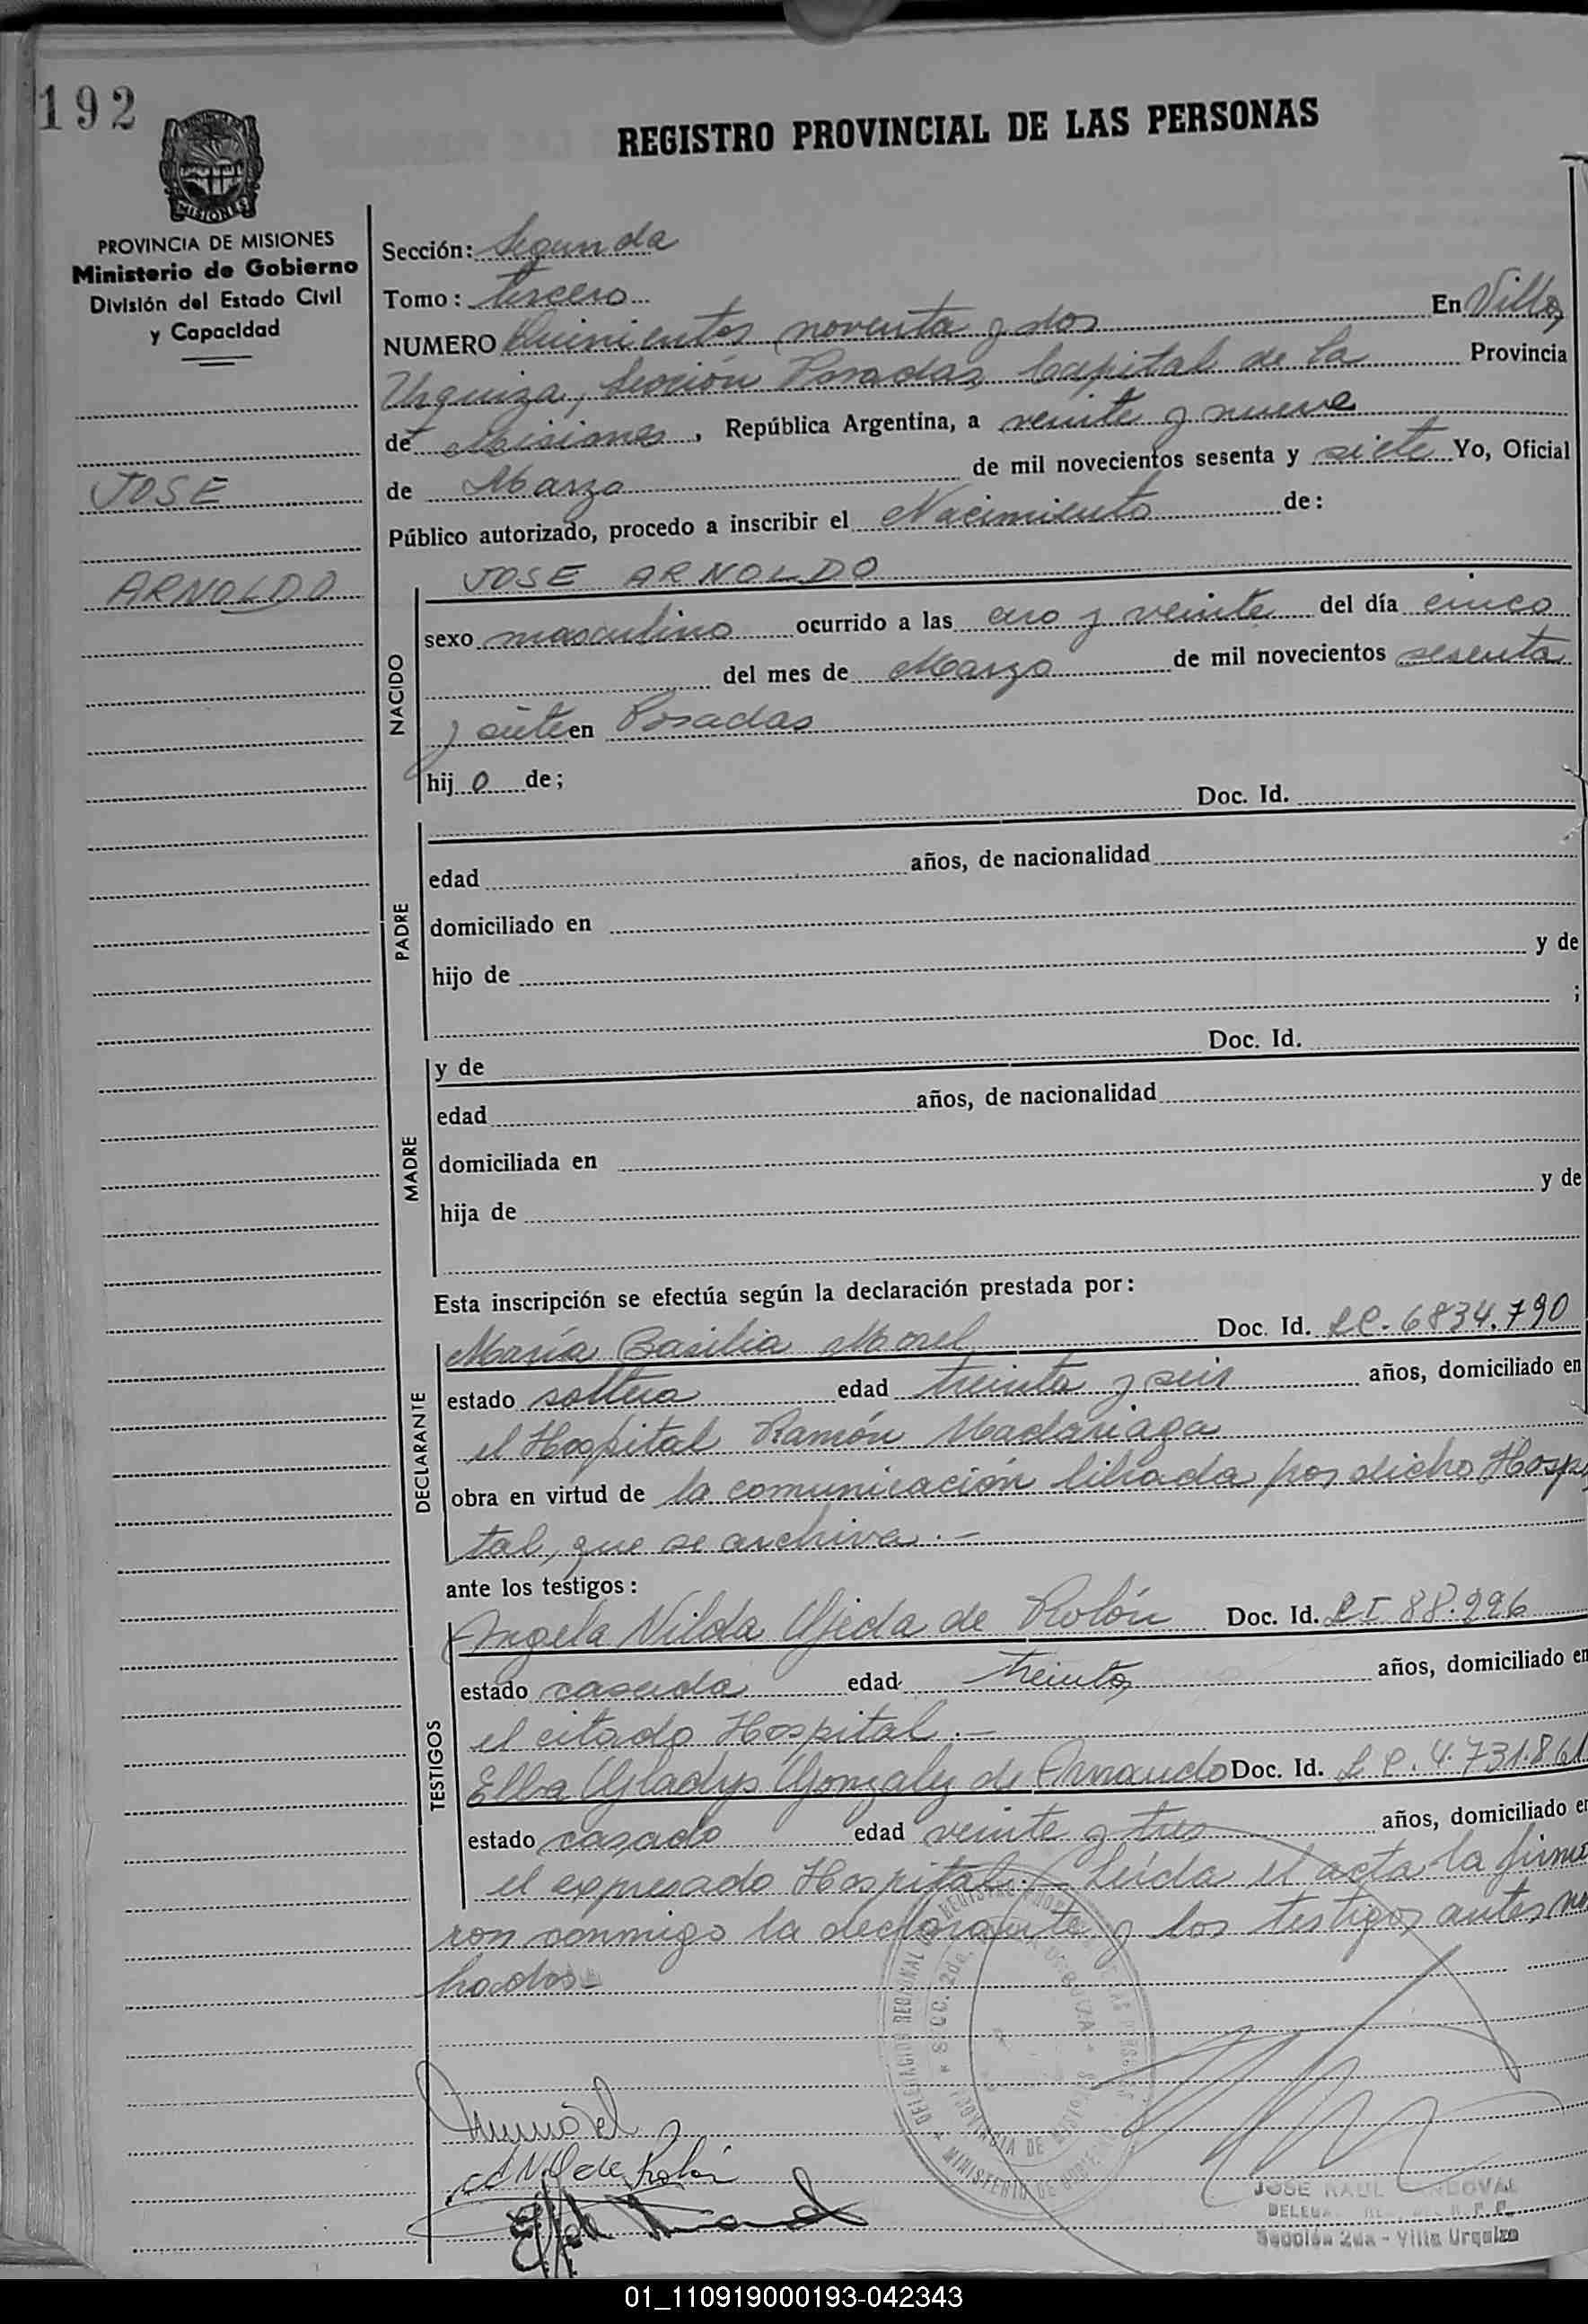 192
REGISTRO PROVINCIAL DE LAS PERSONAS
MISIONES
PROVINCIA DE MISIONES
Ministerio de Gobierno
División del Estado Civil
y Capacidad
JOSE
ARNOLDO
Sección: Segunda
Tomo: tercero
NUMERO Quinientos noventa y dos En Villa
Urquiza, Sección Posadas Capital de la Provincia
de Misiones, República Argentina, a veinte y nueve
de Marzo de mil novecientos sesenta y siete Yo, Oficial
Público autorizado, procedo a inscribir el Nacimiento de:
JOSE ARNOLDO
NACIDO
sexo masculino ocurrido a las cero y veinte del día cinco
del mes de Marzo de mil novecientos sesenta
y siete en Posadas
hijo de;
Doc. Id.
PADRE
edad años, de nacionalidad
domiciliado en
hijo de y de
;
y de Doc. Id.
MADRE
edad años, de nacionalidad
domiciliada en
hija de y de
Esta inscripción se efectúa según la declaración prestada por:
DECLARANTE
María Basilia Morel Doc. Id. LC. 6834.790
estado soltera edad treinta y seis años, domiciliado en
el Hospital Ramón Madariaga
obra en virtud de la comunicación librada por dicho Hospi
tal, que se archiva.-
ante los testigos:
TESTIGOS
Angela Nilda Ojeda de Rolón Doc. Id. 88.996
estado casada edad treinta años, domiciliado en
el citado Hospital.-
Elba Gladys Gonzalez de Doc. Id. L C. 4.731.861
estado casado edad veinte y tres años, domiciliado en
el expresado Hospital.- Leída el acta la firma
ron conmigo la declarante y los testigos antes no
brados-
de Rolón
JOSE RAUL
Sección 2da - Villa Urquiza
01_110919000193-042343